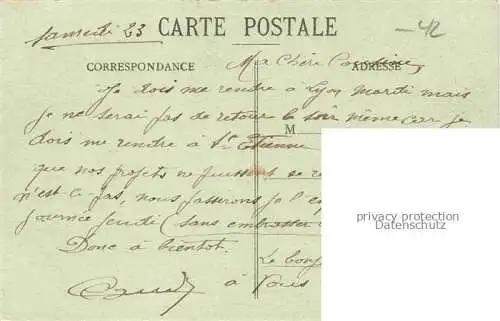 Samedi 23
CARTE POSTALE
42
CORRESPONDANCE
ADRESSE
Ma Chère Cousine,
Je dois me rendre à Lyon mardi mais
je ne serai pas de retour le soir même car je
M
dois me rendre à St Etienne
que nos projets ne puissent se
n'est-ce-pas, nous passerons je l'
journée jeudi (sans embrasser
Donc à bientôt.
Le bonj
à vous
privacy protection
Datenschutz